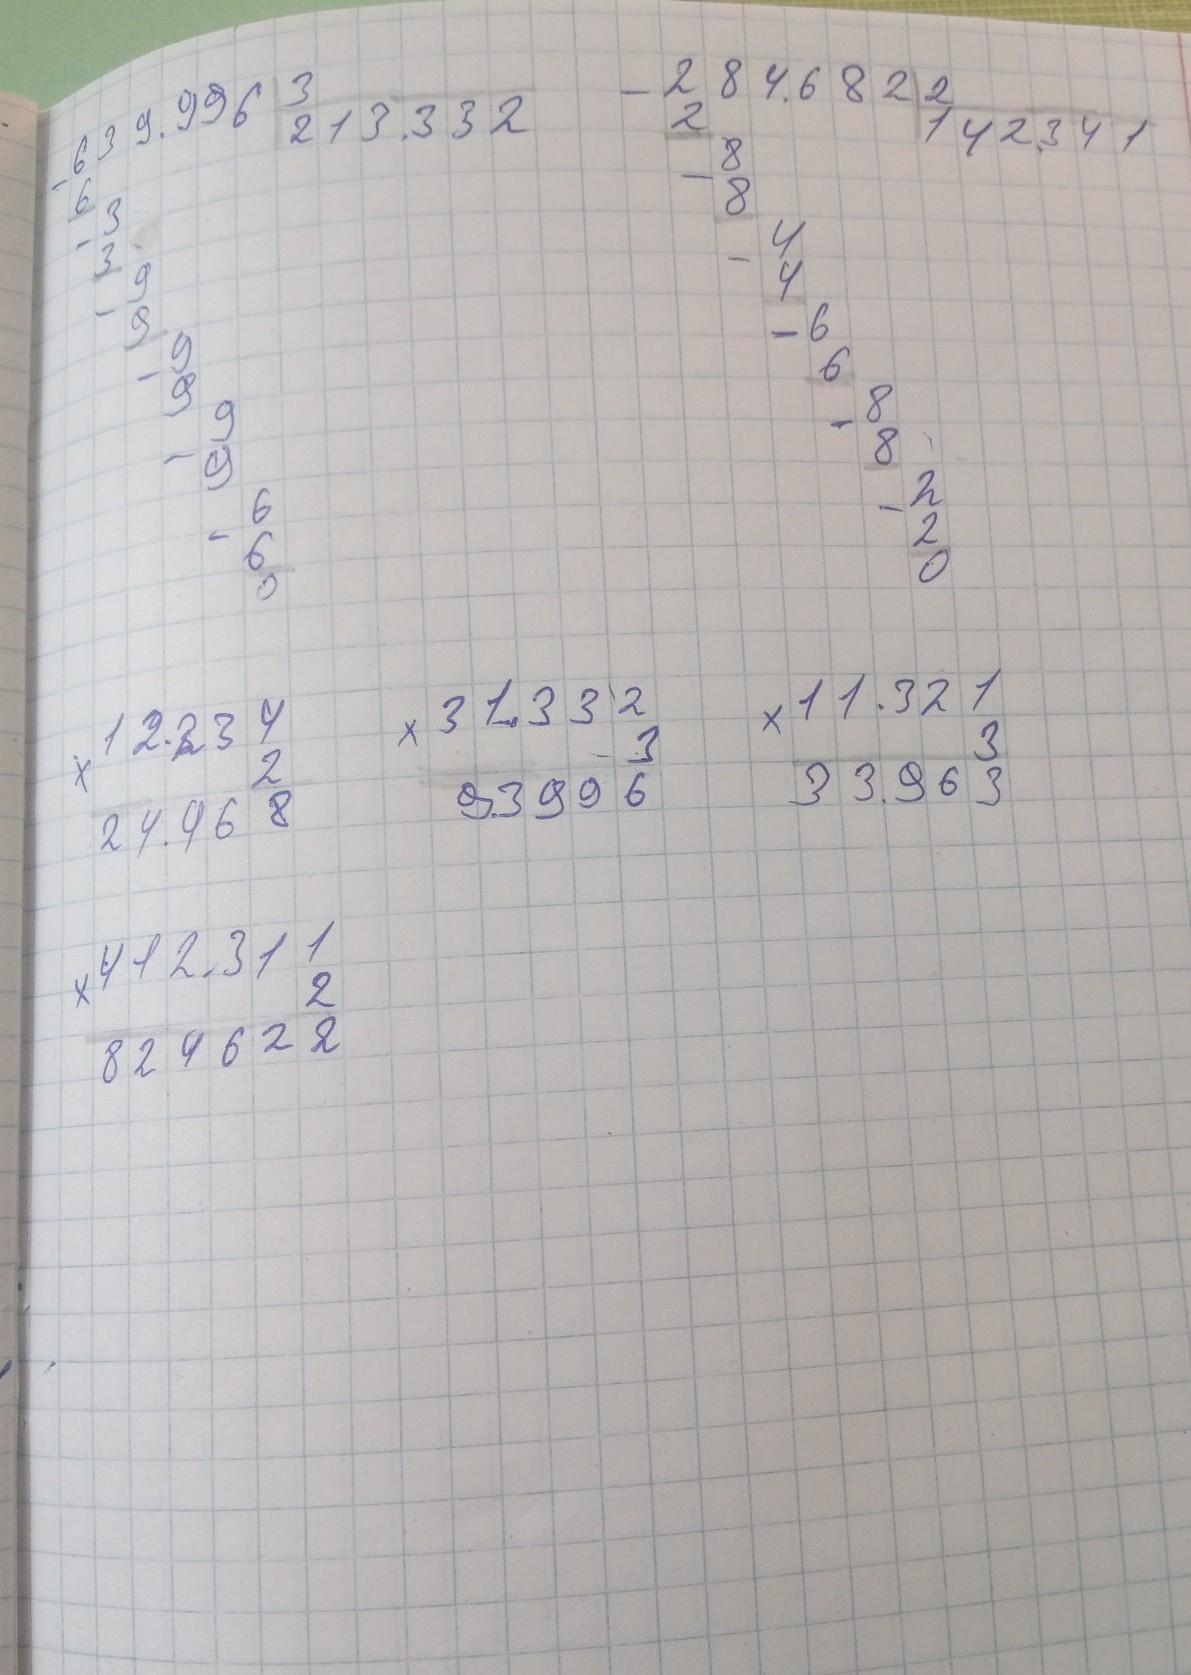 -639.996 3
213.332
6
-3
3
-9
9
-9
9
-9
9
-6
6
0
-284.682 2
142.341
2
-8
8
-4
4
-6
6
-8
8
-2
2
0
x12.234
2
24.468
x31.332
3
9.3996
x11.321
3
33.963
x412.311
2
824622